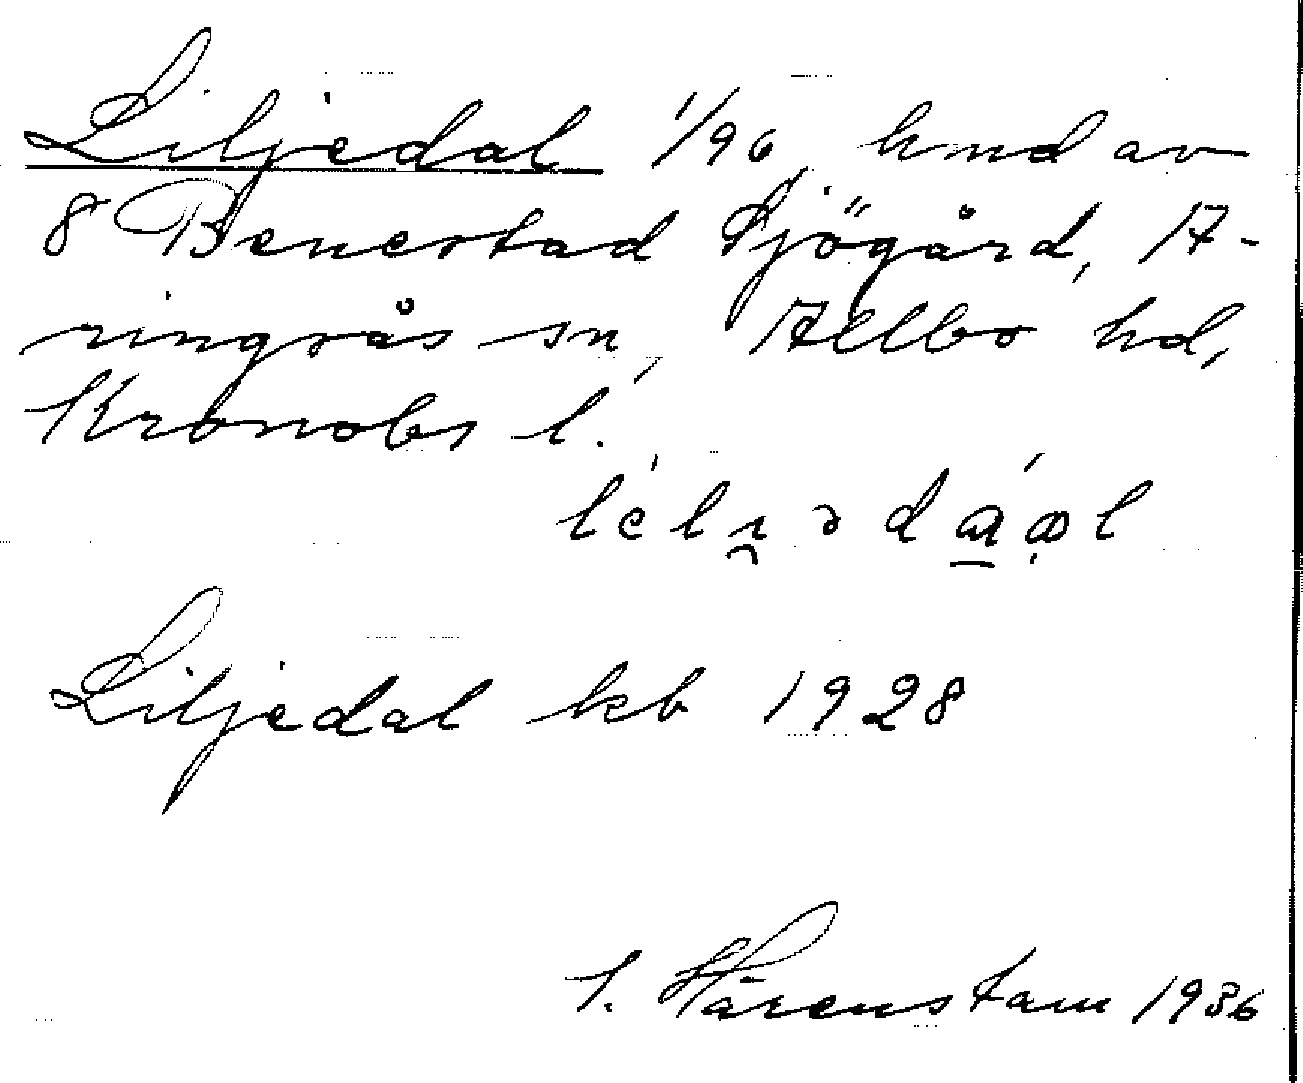 Liljedal 1/96 hmd av
8 Benestad Sjögård, A-
ringsås sn, Allbo hd,
Kronobs l.
Liljedal kb 1928
Härenstam 1936